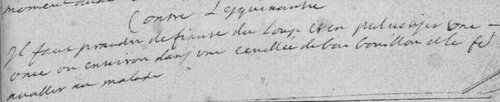 Contre Lesquinantie
Il faut prandre de fiante du Loup et en pulveriser une
once ou environ dans une ceuillee de bon bouillon et le fe
avaller au malade